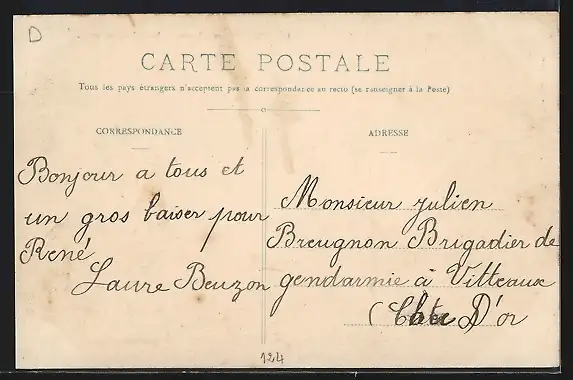 D
CARTE POSTALE
Tous les pays étrangers n'acceptent pas la correspondance au recto (se renseigner à la Poste)
CORRESPONDANCE
ADRESSE
Bonjour a tous et
un gros baiser pour
René
Laure Beuzon
Monsieur Julien
Breugnon Brigadier de
gendarmie à Vitteaux
(Côte D'or
124